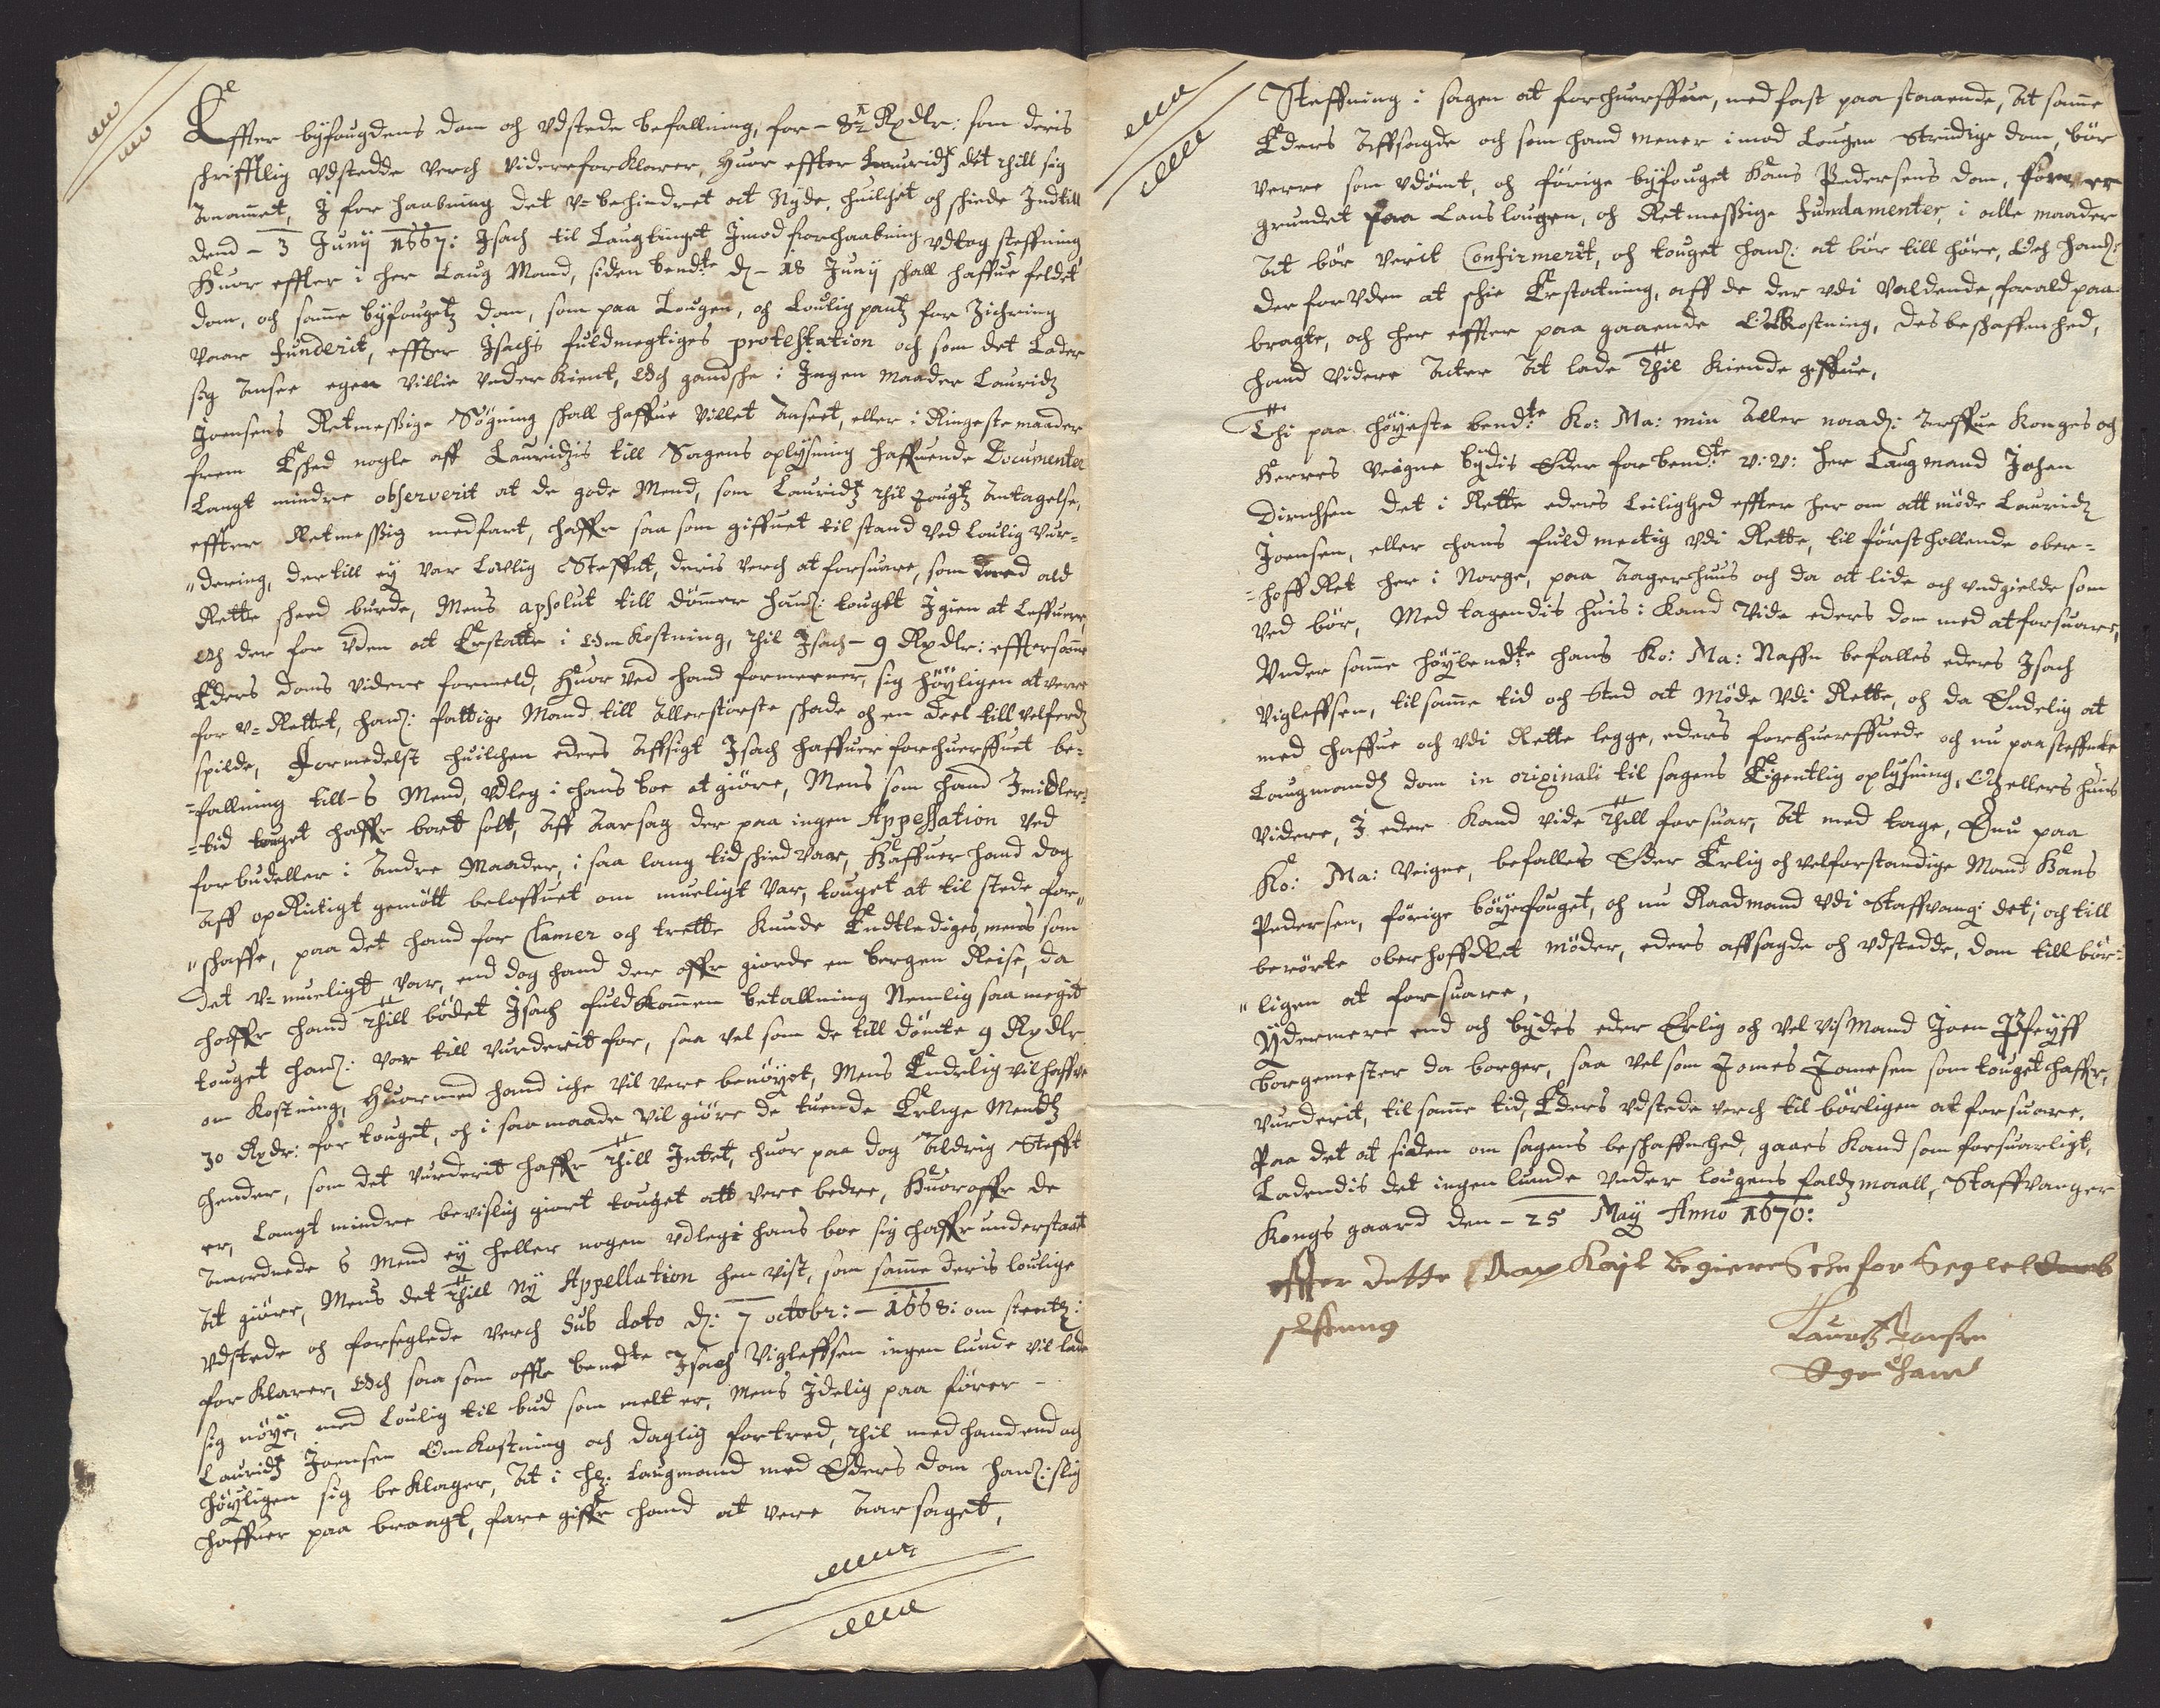 Effter byfougdens dom och vdstede befallning, for - 8½ Rxdlr: som deris
schrifftlig vdstedde verch videre forklarer, Huor effter Lauridz det thill sig
Annammet, I forhaabning det v-behindret at Nyde, huilchet och schiede Indtill
dend - 3 Junij 1667: Isach til Laugtinget Imod forhaabning vdtog steffning
Huor effter i her Laug Mand, siden bendte dj - 18 Junij schall haffue feldet
dom, och samme byfougetz dom, som paa Lougen, och Loulig pantz forsichring
vaar funderit, effter Isachs fuldmegtiges protestation och som det Lader
sig Ansee egen villie vnderkient, och gandsche i Ingen maader Lauridz
Joensens Retmessige Søgning schall haffue villet Anseet, eller i Ringeste maader
frem Esched nogle aff Lauridzis till Sagens oplysning haffuende Documenter
Langt mindre observerit at de gode Mend, som Lauridtz thil tougtz Antagelse,
effter Retmessig medfart, haffr saa som giffuet tilstand ved Loulig vur-
"dering, der till ey var Lovlig Steffnt, deris verch at forsuare, som med ald
Rette scheed burde, Mens apsolut till dømmer hanß: touget Igien at Leffuere,
och der foruden at Erstatte i Omkostning, thil Isach - 9 Rxdlr: effter samme
Eders doms videre formeld, Huor ved hand formeener, sig høyligen at vere
for v-Rettet, hanß: fattige Mand till Allerstørste schade och en deel till velferdz
spilde, Formedelst huilchen eders Affsigt Isach haffuer forhuerffuet be-
=fallning till - 6 Mend, vdleg i hans boe at giøre, Mens som hand Imidler-
=tid touget haffr bort solt, Aff Aarsag der paa ingen Appellation ved
forbud eller i Andre Maader, i saa lang tid schied vaar, Haffuer hand dog
Aff opRichtigt gemøtt beloffuet om mueligt var, touget at til stede for-
"schaffe, paa det hand for Clamer och trette kunde Endtlediges, mens som
det v-mueligt var, end dog hand der offr giorde en bergen Reise, da
haffr hand thill bødet Isach fuldkommen betallning Nemlig saa megit
touget hanß: var till vurderit for, saa vel som de till dømte 9 Rxdlr
omkostning, Huormed hand iche vil vere benøyet, Mens Endelig vil haffue
30 Rxdr: for touget, och i saa maade vil giøre de tuende Erlige Mendtz
hender, som det vurderit haffr thill Intet, huor paa dog Aldrig Stefft
er, Langt mindre bevislig giort touget att vere bedre, Huor offr de
Anordnede 6 Mend ey heller nogen vdleg i hans boe sig haffr understaat
At giøre, Mens det thill Ny Appellation hen vist, som samme deris loulige
vdstede och forseglede verch sub dato dj: 7 octobr: - 1668: om
forklarer, Och saa som offte bendte Isach Vigleffsen ingenlunde vil lade
sig nøye, med Loulig tilbud som melt er, Mens Idelig paa fører -
Lauridtz Joensen Omkostning och daglig fortred, thil med hand end og
Høyligen sig beklager, At i Hr: Laugmand med Eders dom hanß: slig
haffuer paa braagt, fare giffr hand at vere Aarsaget,
Steffning i sagen at forhuerffue, med fast paa staaende, At samme
Eders Affsagde och som hand mener imod Lougen Stridige dom, bør
verre som vdømt, och førige byfouget Hans Pedersens dom, som er
grundet paa Lanslougen, och Retmessige fundamenter, i alle maader
At bør verit Confirmerit, och touget hanß: at bør till høre, Och hanß:
der foruden at schie Erstatning, aff de der vdi Valdende, for ald paa
bragte, och her effter paa gaaende Omkostning, des beschaffenhed,
hand videre Acter At lade thil kiende giffue,
Thi paa høyeste bendte Ko: Ma: min Aller naadß: Arffue Konges och
Herres Veigne bydis Eder forbendte v:v: Her Laugmand Johan
Dirichsen det i Rette eders Leilighed effter her om att møde Lauridz
Joensen, eller hans fuldmectig vdi Rette, til først hollende ober-
=hoff Ret her i Norge, paa Aagershuus och da at lide och vndgielde som
ved bør, Med tagendis huis i kand vide eders dom med at forsuare,
Vnder samme høybendte hans Ko: Ma: Naffn befalles eders Isach
Vigleffsen, til samme tid och sted at Møde vdi Rette, och da Endelig at
med haffue och vdi Rette legge, eders forhuerffuede och nu paasteffnte
Laugmandß dom in originali til sagens Eigentlig oplysning, Och ellers huis
videre, I eder kand vide thill forsuar, At med tage, Enu paa
Ko: Ma: Veigne, befalles Eder Erlig och velforstandige Mand Hans
Pedersen, førige böyefouget, och nu Raadmand vdi Staffvang: det i och till
berørte oberhoffRet møder, eders affsagde och vdstedde, dom till bør-
"ligen at forsuare,
Ydermere end och bydes eder Erlig och vel viß Mand Joen Pheyff
Borgemester da borger, saa vel som Jomes Jomesen som touget haffr,
vurderit, til samme tid, Eders vdstede verch til børligen at forsuare,
Paa det at siden om sagens beschaffenhed, gaaes kand som forsuarligt,
Ladendis det ingenlunde vnder Lougens faldzmaall, Staffvanger
Kongs gaard den - 25 May Anno 1670:
effter dette begierer for Seglet
steffning
Lauritz Joensen
Egen Haand